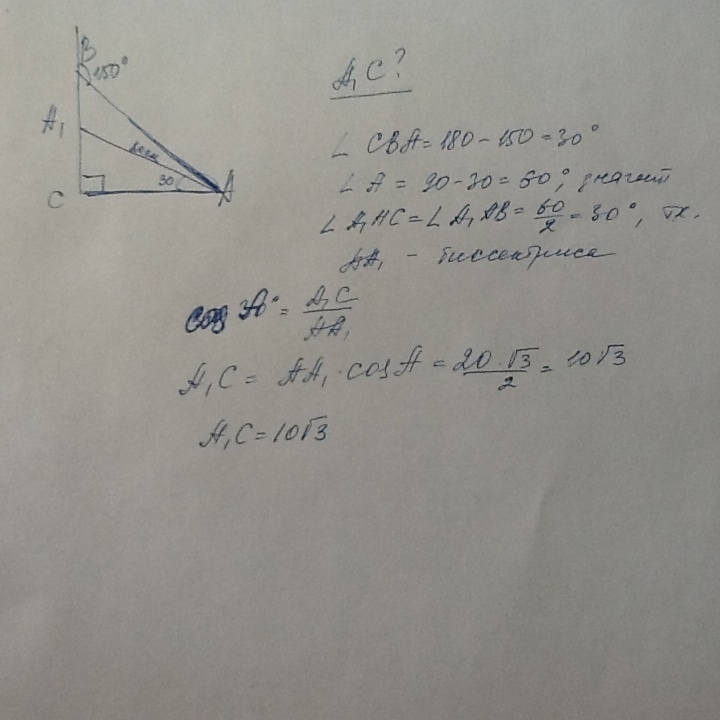 B
150°
A₁
30
C
A
A₁C?
∠ CBA = 180 - 150 = 30°
∠ A = 90 - 30 = 60°, значит
∠ A₁AC = ∠ A₁AB = 60/2 = 30°, т.к.
AA₁ - биссектриса
cos 30° = A₁C/AA₁
A₁C = AA₁ · cos A = 20·√3/2 = 10√3
A₁C = 10√3